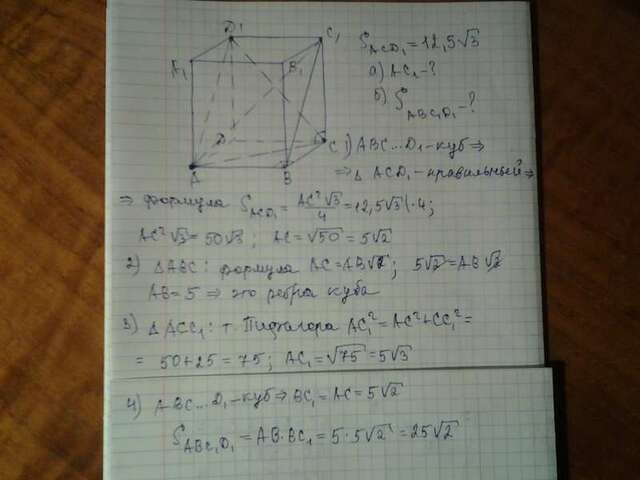 D¹
C₁
A₁
B₁
D
C
A
B
S_ACD₁ = 12,5√3
а) AC₁ - ?
б) S_ABC₁D₁ - ?
1) ABC...D₁ - куб ⇒
⇒ △ ACD₁ - правильный ⇒
⇒ формула S_ACD₁ = AC²√3/4 = 12,5√3 | · 4;
AC²√3 = 50√3; AC = √50 = 5√2
2) △ABC: формула AC = AB√2; 5√2 = AB√2
AB = 5 ⇒ это ребра куба
3) △ ACC₁: т. Пифагора AC₁² = AC² + CC₁² =
= 50 + 25 = 75; AC₁ = √75 = 5√3
4) ABC...D₁ - куб ⇒ BC₁ = AC = 5√2
S_ABC₁D₁ = AB · BC₁ = 5 · 5√2 = 25√2